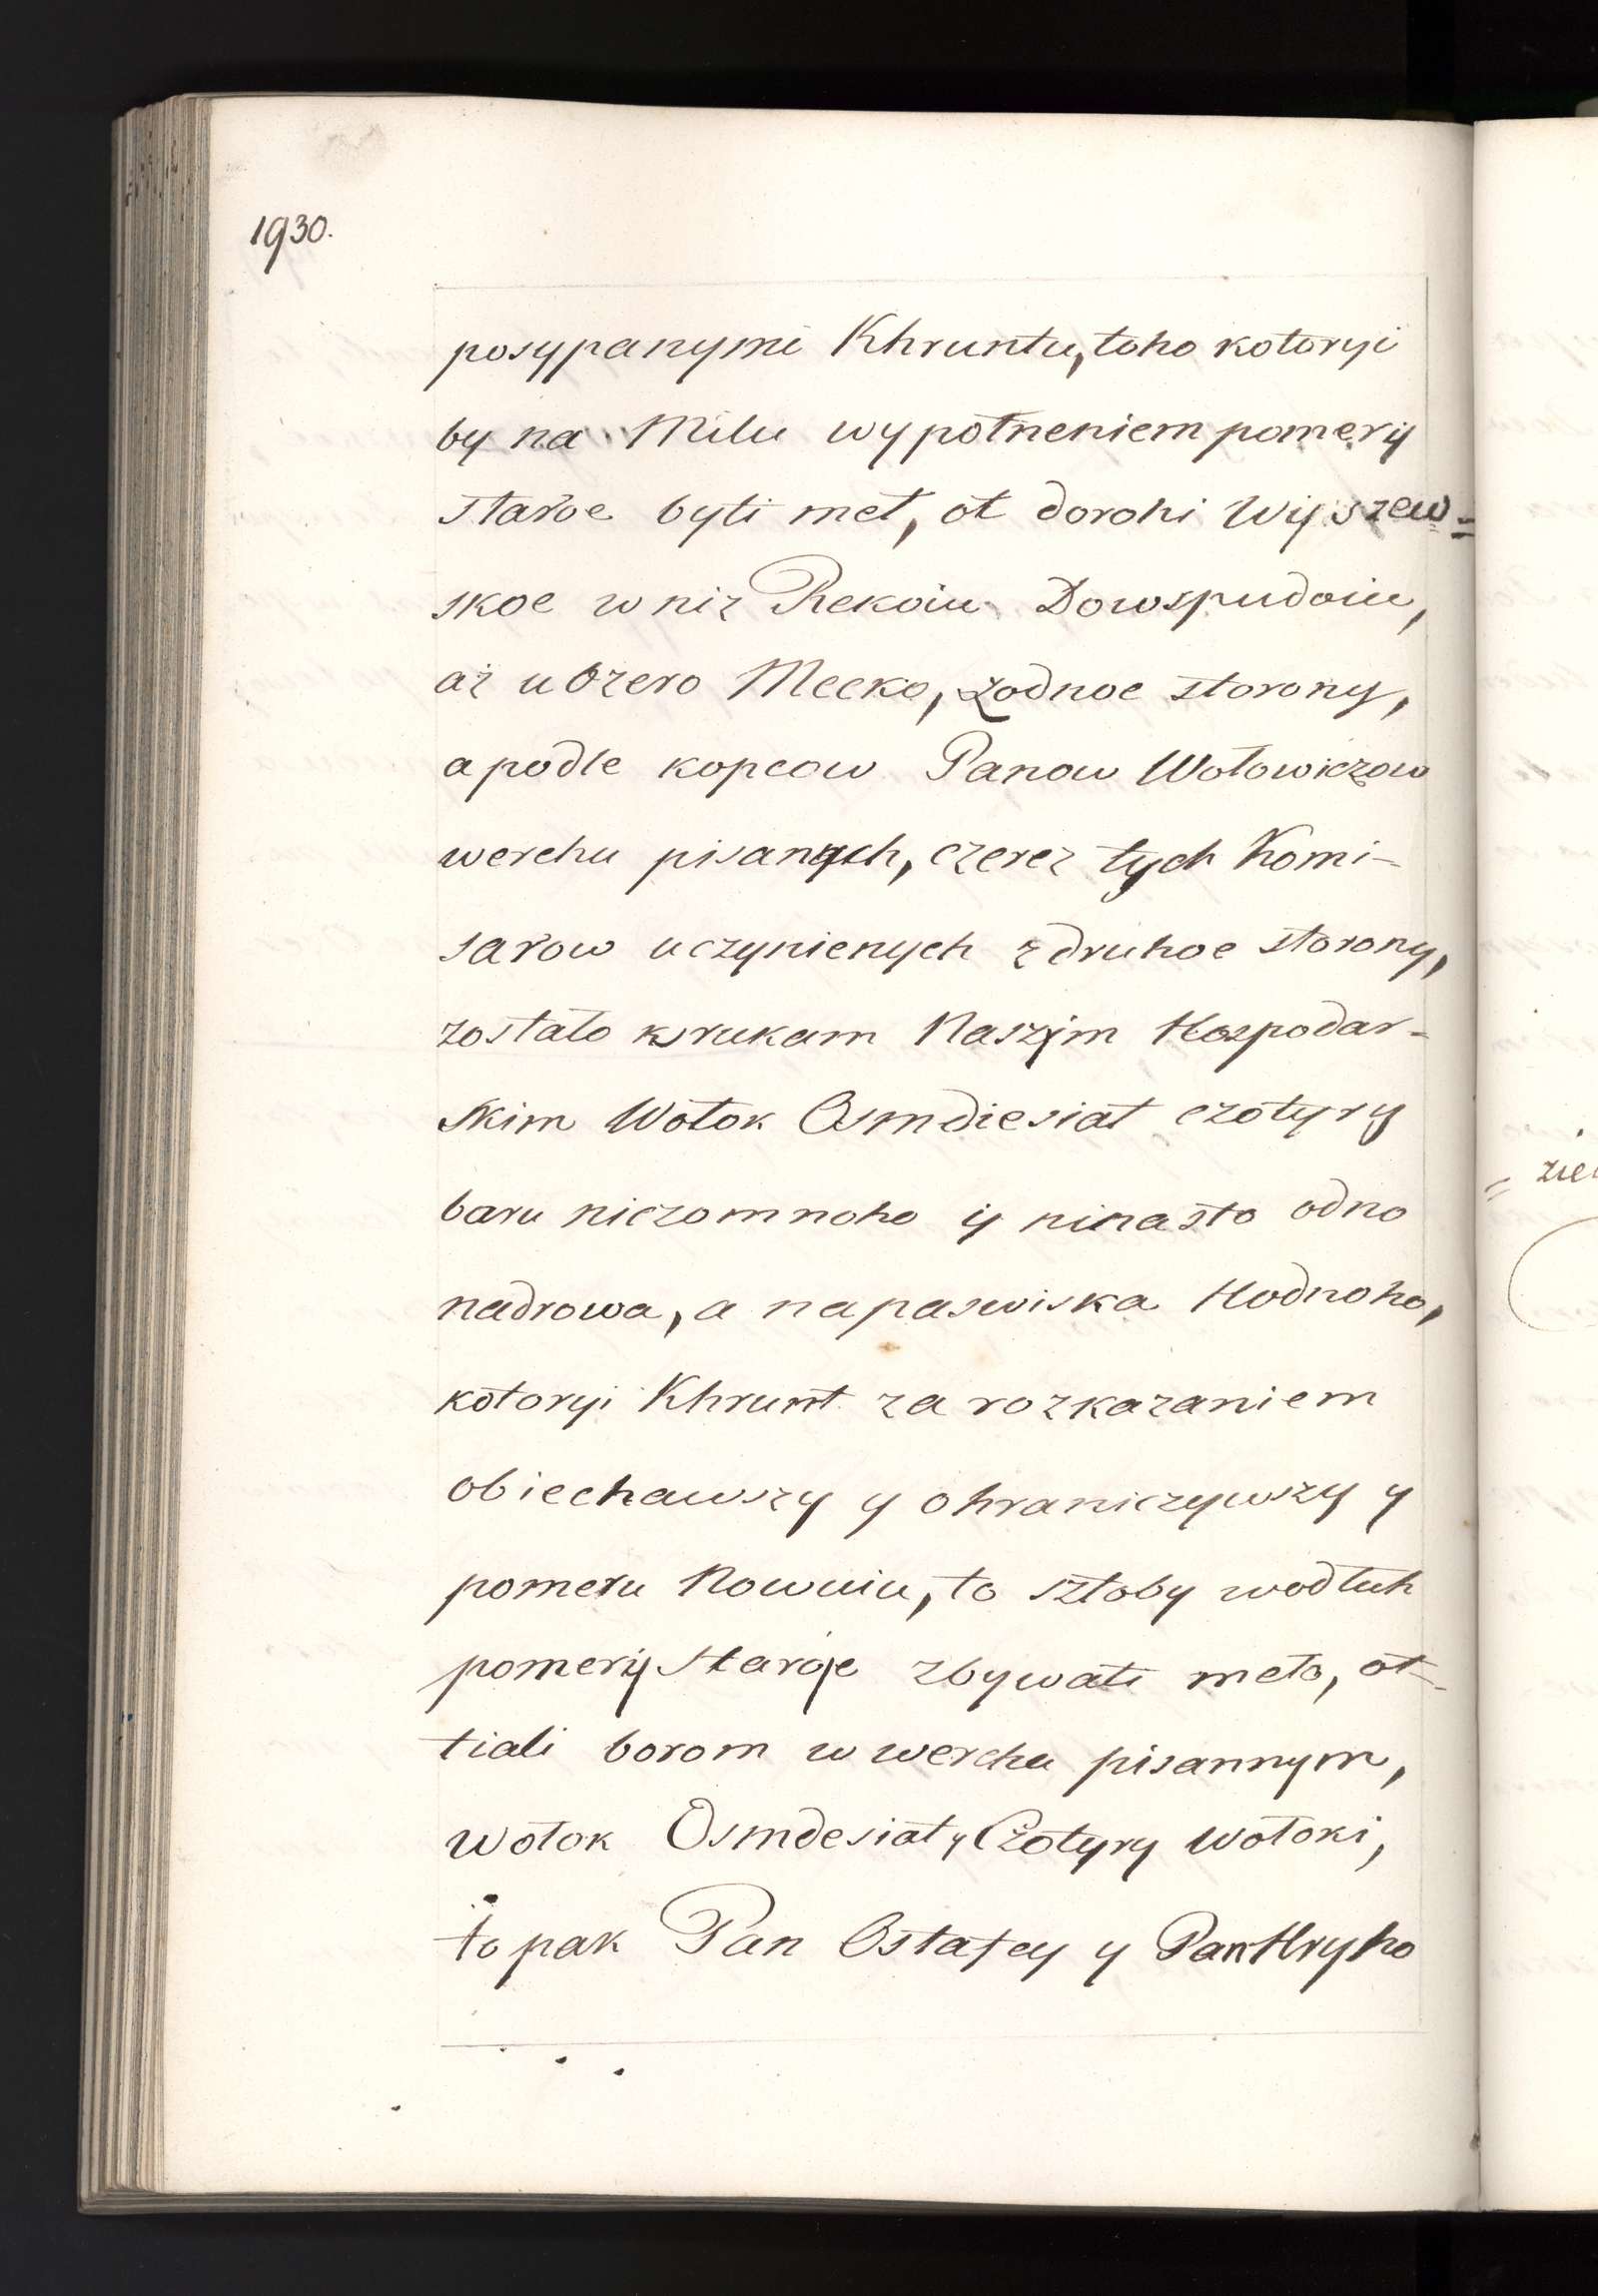 1930.
posypanymi Khruntu, toho kotoryi
by na Milu wypołneniem pomery
staroe byti meł, ot dorohi Wyszew=
skoe w niz Rekoiu Dowspudoiu,
aż u Ozero Mecko, z odnoe storony,
a podle kopcow Panow Wołowiczow
werchu pisanych, czerez tych Komi-
sarow uczynienych z druhoe storony,
zostało k rukam Naszym Hospodar-
skim Włok Osmdiesiat czotyry
baru niczomnoho y ni na szto odno
na drowa, a na paswiska Hodnoho,
kotoryi Khrunt za rozkazaniem
obiechawszy y ohraniczywszy y
pomeru Nowuiu, to sztoby wodłuh
pomery Staroje zbywati meło, ot-
tiali borom w werchu pisannym,
wołok Osmdesiat y Czotyry wołoki,
to pak Pan Ostafey y Pan Hryho
= zie